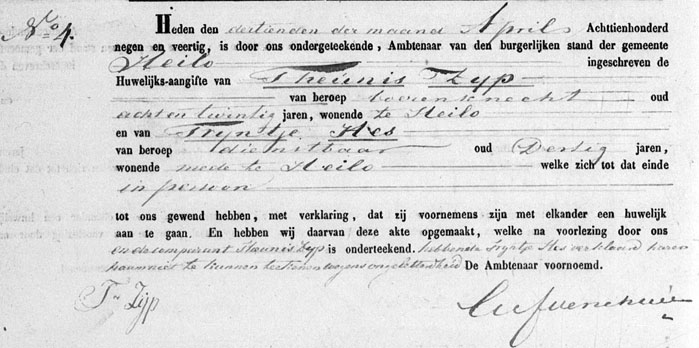 No. 4. Heden den dertienden der maand April Achttienhonderd
negen en veertig, is door ons ondergeteekende, Ambtenaar van den burgerlijken stand der gemeente
Heilo ingeschreven de
Huwelijks-aangifte van Theunis Zyp
van beroep boerenknecht oud
acht en twintig jaren, wonende te Heilo
en van Tryntje Hes
van beroep dienstbaar oud Dertig jaren,
wonende mede te Heilo welke zich tot dat einde
in persoon
tot ons gewend hebben, met verklaring, dat zij voornemens zijn met elkander een huwelijk
aan te gaan. En hebben wij daarvan deze akte opgemaakt, welke na voorlezing door ons
en de comparant Theunis Zyp is onderteekend. hebbende Tryntje Hes verklaard haren
naam niet te kunnen teekenen wegens ongeletterdheid De Ambtenaar voornoemd.
Tn Zijp